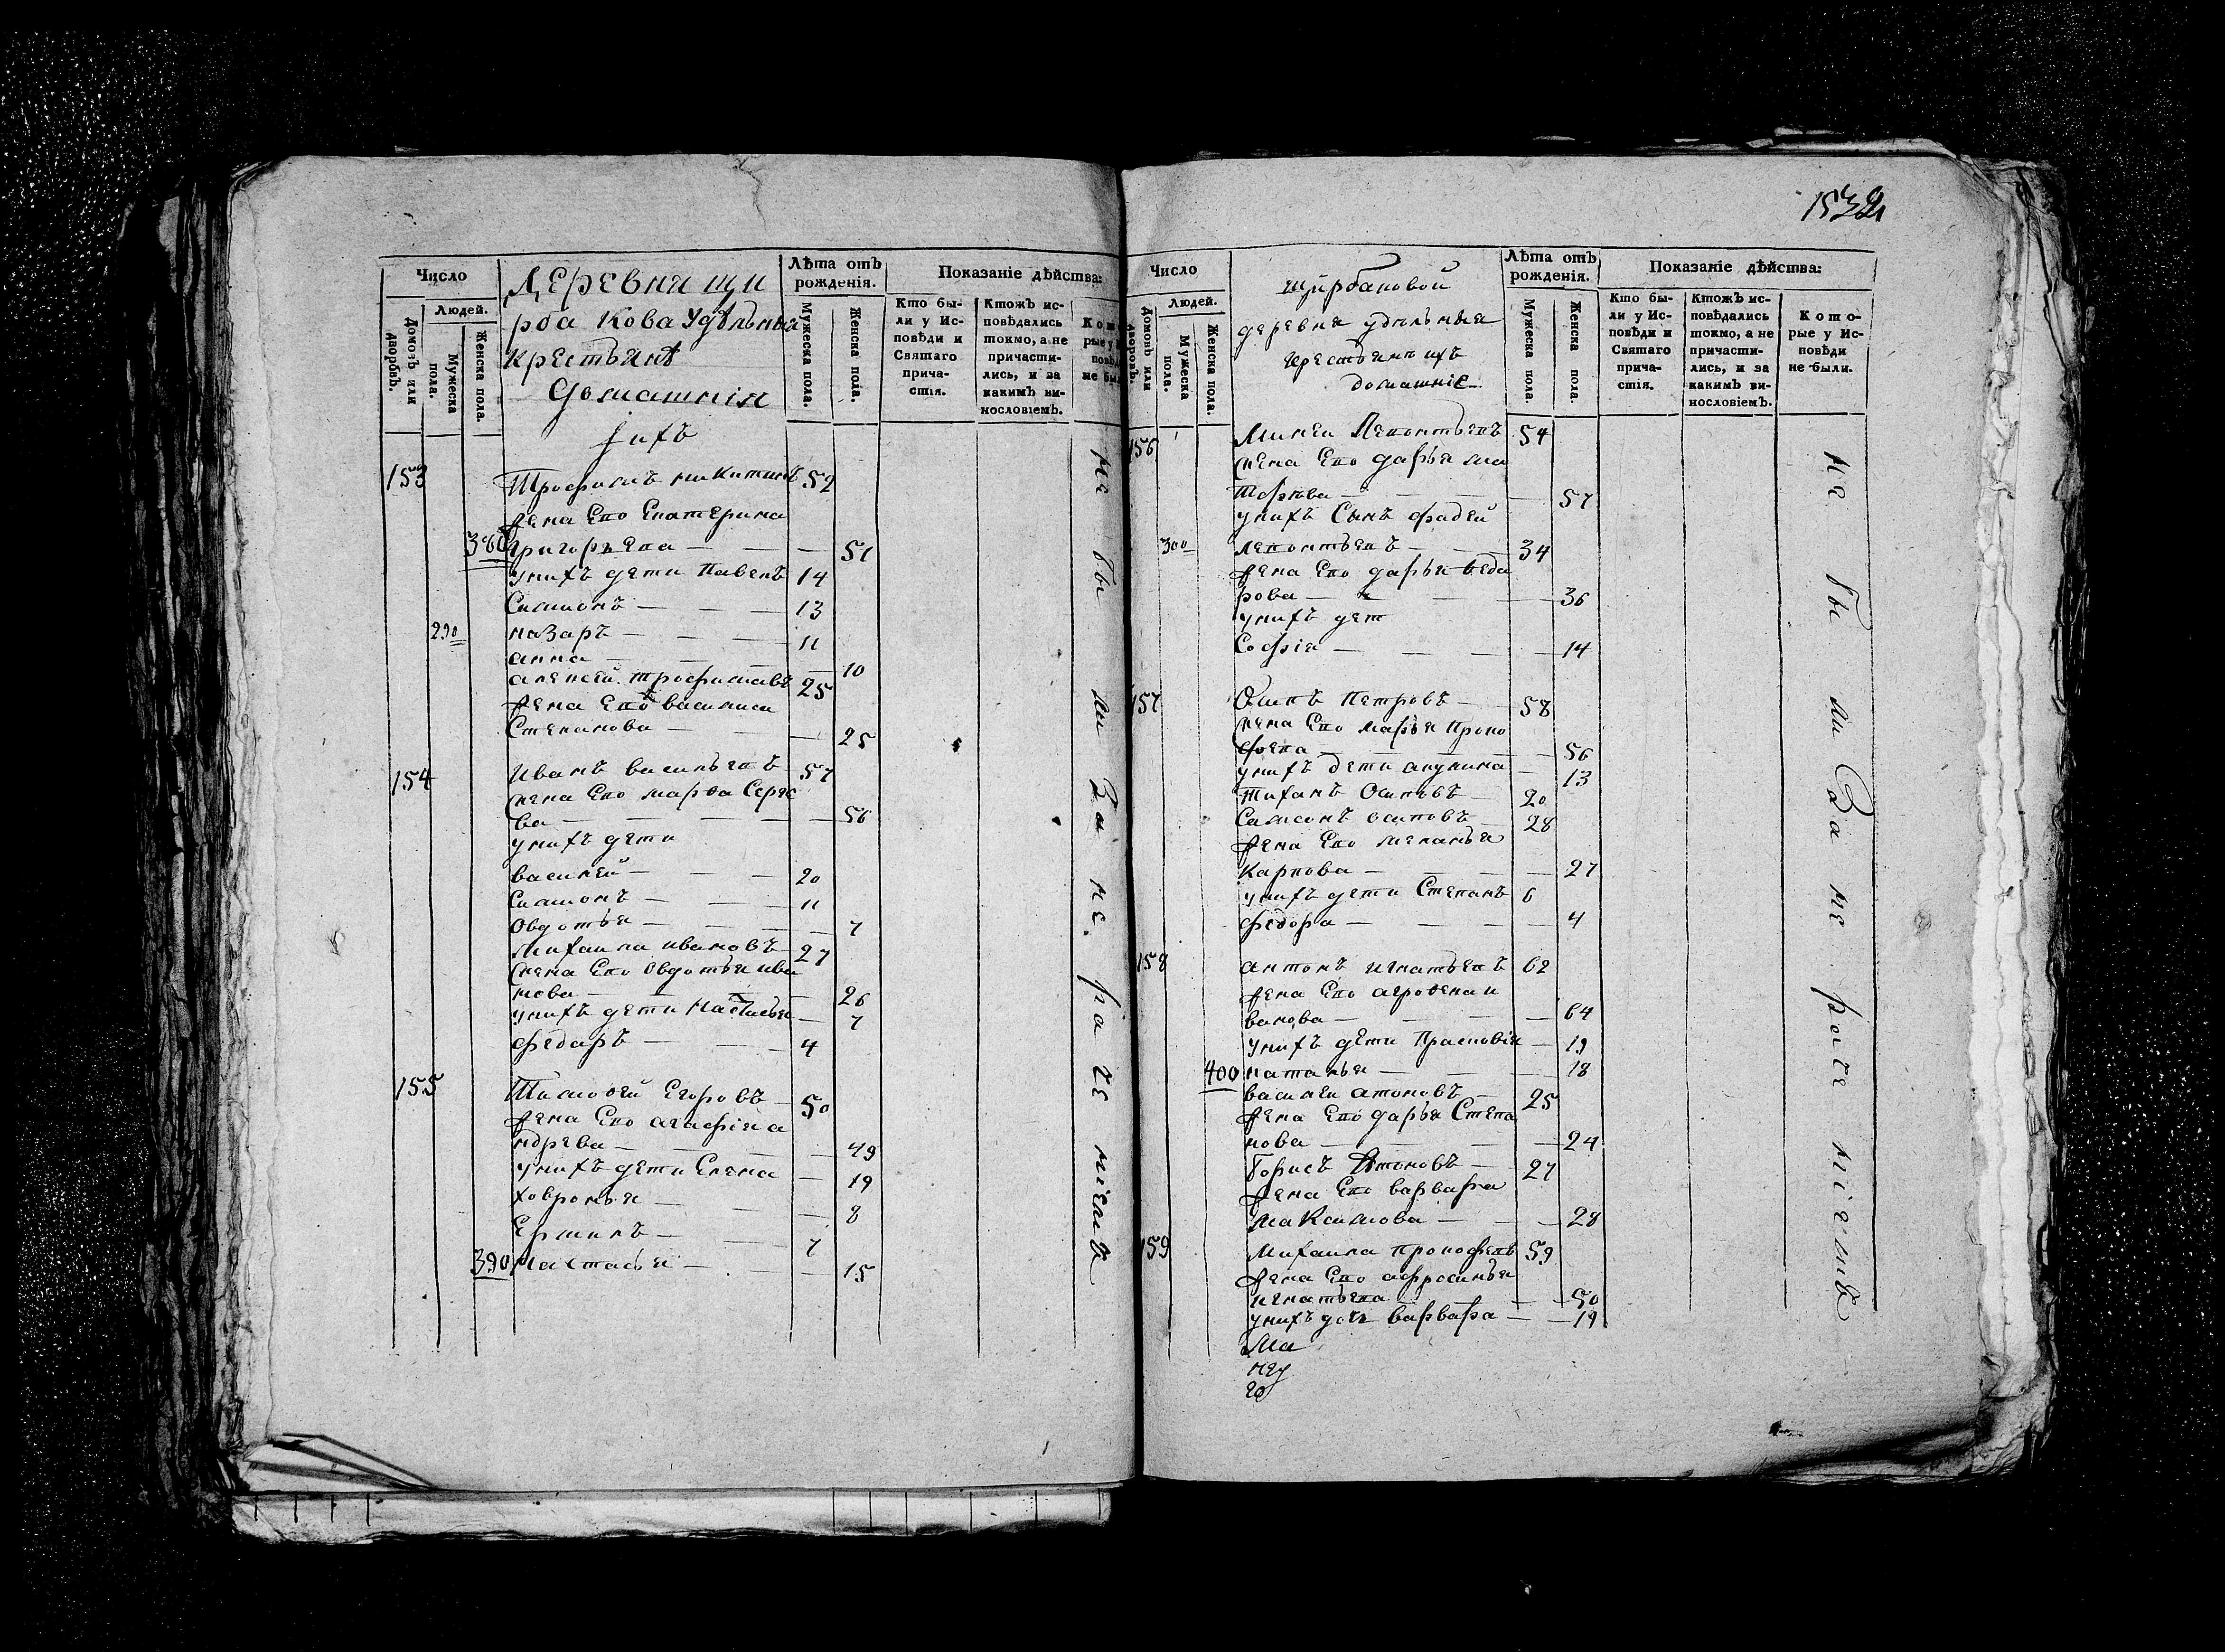 Число
Людей.
Домовъ или дворовъ.
Мужеска пола.
Женска пола.
Деревня щи
рба кова Удѣльныя
крестьянѣ
домашнія
ихъ
Лѣта отъ рожденія.
Мужеска пола.
Женска пола.
Показаніе дѣйства:
Кто бы-
ли у Ис-
повѣди и
Святаго
прича-
стія.
Ктожъ ис-
повѣдались
токмо, а не
причасти-
лись, и за
какимъ ви-
нословіемъ.
153 Трофимъ никитинъ 52
жена Его Екатерина
380 григорьева — — — 51
унихъ дети Павелъ 14
Симионъ — — — 13
290 назаръ — — — 11
анна — — — 10
алексей трофимавъ 25
жена Его василиса
Степанова — — 25
154 Иванъ васильевъ 57
жена Его марѳа Серге
ва — — — 56
унихъ дети
василей — — — 20
Симионъ — — — 11
Овдотья — — — 7
Михаила ивановъ 27
жена Его Овдотья ива
нова — — — 26
унихъ дети Настасья — 7
федаръ — — — 4
155 Тимоѳей Егоровъ 50
жена Его агафія а
ндрева — — — 49
унихъ дети Елена — 19
ховронья — — — 8
7
390 Настасья — — — 15
не бы ли За не ра че ніемъ
Число
Людей.
Домовъ или дворовъ.
Мужеска пола.
Женска пола.
щирбаковой
деревни удѣльныя
крестьяни ихъ
домашніе
Лѣта отъ
рожденія.
Мужеска пола.
Женска пола.
Показаніе дѣйства:
Кто бы-
ли у Ис-
повѣди и
Святаго
прича-
стія.
Ктожъ ис-
повѣдались
токмо, а не
причасти-
лись, и за
какимъ ви-
нословіемъ.
Кото-
рые у Ис-
повѣди
не были.
156 Минеи Левонтьевъ 54
жена Его дарья ма
— — — 57
унихъ Сынъ фадей
300 левонтьевъ — — 34
жена Его дарья феда
рова — — — 36
унихъ дет
Софія — — — 14
157 Осипъ Петровъ — 58
жена Его марья Проко
фева — — — 56
унихъ дети акулина — 13
Тиханъ Осиповъ — 20
Самсонъ осиповъ — 28
жена Его меланья
Карпова — — — 27
унихъ дети Степанъ 6
федора — — — 4
158 антонъ игнатьевъ 62
жена Его агрофена и
ванова — — — 64
унихъ дети Прасковія — 19
400 наталья — — — 18
василеи атоновъ — 25
жена Его дарья Степа
нова — — — 24
Борисъ Атоновъ — 27
жена Его варвара
максимова — — — 28
159 Михаила прокофевъ 59
жена Его афросинья
игнатьева — — 50
унихъ дочь варвара — 19
Ма
не бы ли За не раче ніемъ